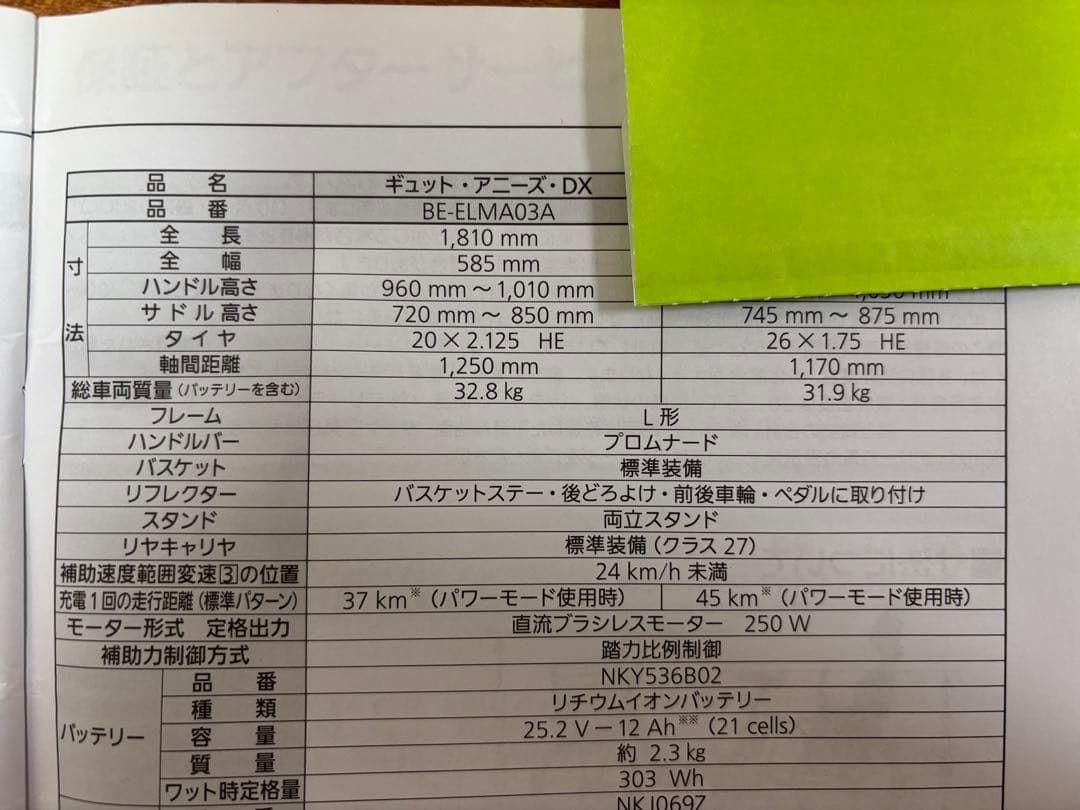 品 名 ギュット・アニーズ・DX
品 番 BE-ELMA03A
寸法
全 長 1,810 mm
全 幅 585 mm
ハンドル高さ 960 mm ～ 1,010 mm
サドル高さ 720 mm ～ 850 mm 745 mm ～ 875 mm
タイヤ 20 × 2.125 HE 26 × 1.75 HE
軸間距離 1,250 mm 1,170 mm
総車両質量(バッテリーを含む) 32.8 kg 31.9 kg
フレーム L 形
ハンドルバー プロムナード
バスケット 標準装備
リフレクター バスケットステー・後どろよけ・前後車輪・ペダルに取り付け
スタンド 両立スタンド
リヤキャリヤ 標準装備（クラス 27）
補助速度範囲変速[3]の位置 24 km/h 未満
充電1回の走行距離(標準パターン) 37 km※（パワーモード使用時） 45 km※（パワーモード使用時）
モーター形式 定格出力 直流ブラシレスモーター 250 W
補助力制御方式 踏力比例制御
バッテリー
品 番 NKY536B02
種 類 リチウムイオンバッテリー
容 量 25.2 V － 12 Ah※※（21 cells）
質 量 約 2.3 kg
ワット時定格量 303 Wh
NKJ069Z